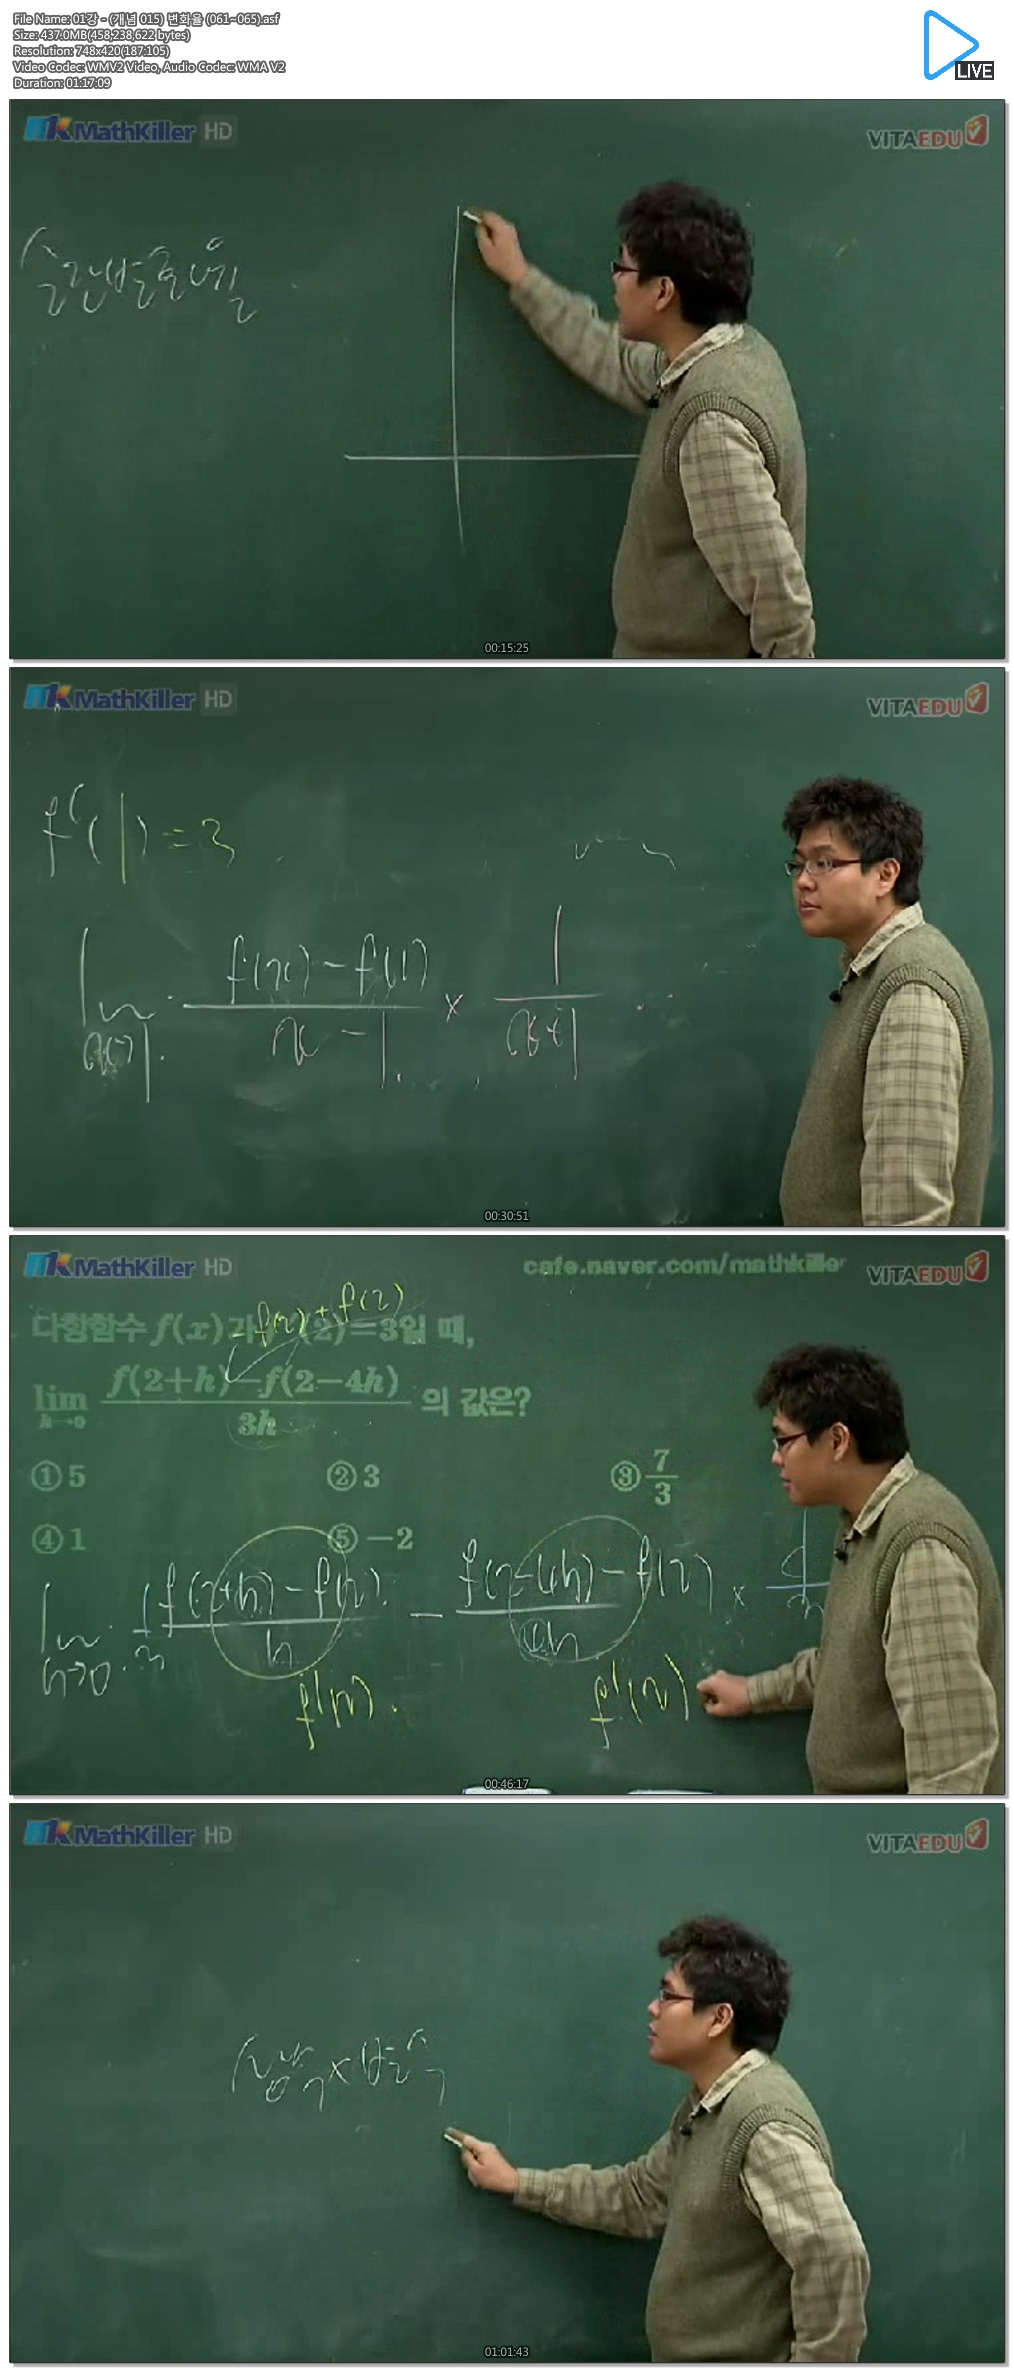 File Name: 01강 - (개념 015) 변화율 (061~065).asf
Size: 437.0MB(458,238,622 bytes)
Resolution: 748x420(187:105)
Video Codec: WMV2 Video, Audio Codec: WMA V2
Duration: 01:17:09
LIVE
MathKiller HD
VITAEDU
00:15:25
MathKiller HD
VITAEDU
f'(1) = 3
lim f(x) - f(1) × 1
x→1 x - 1 x+1
00:30:51
MathKiller HD
cafe.naver.com/mathkiller
VITAEDU
-f(2)+f(2)
다항함수 f(x)가 (2)=3일 때,
lim f(2+h)-f(2-4h) 의 값은?
h→0 3h
① 5 ② 3 ③ 7/3
④ 1 ⑤ -2
lim 1/3 f(2+h)-f(2) - f(2-4h)-f(2) ×
h→0 h 4h
f'(2) f'(2)
00:46:17
MathKiller HD
VITAEDU
01:01:43